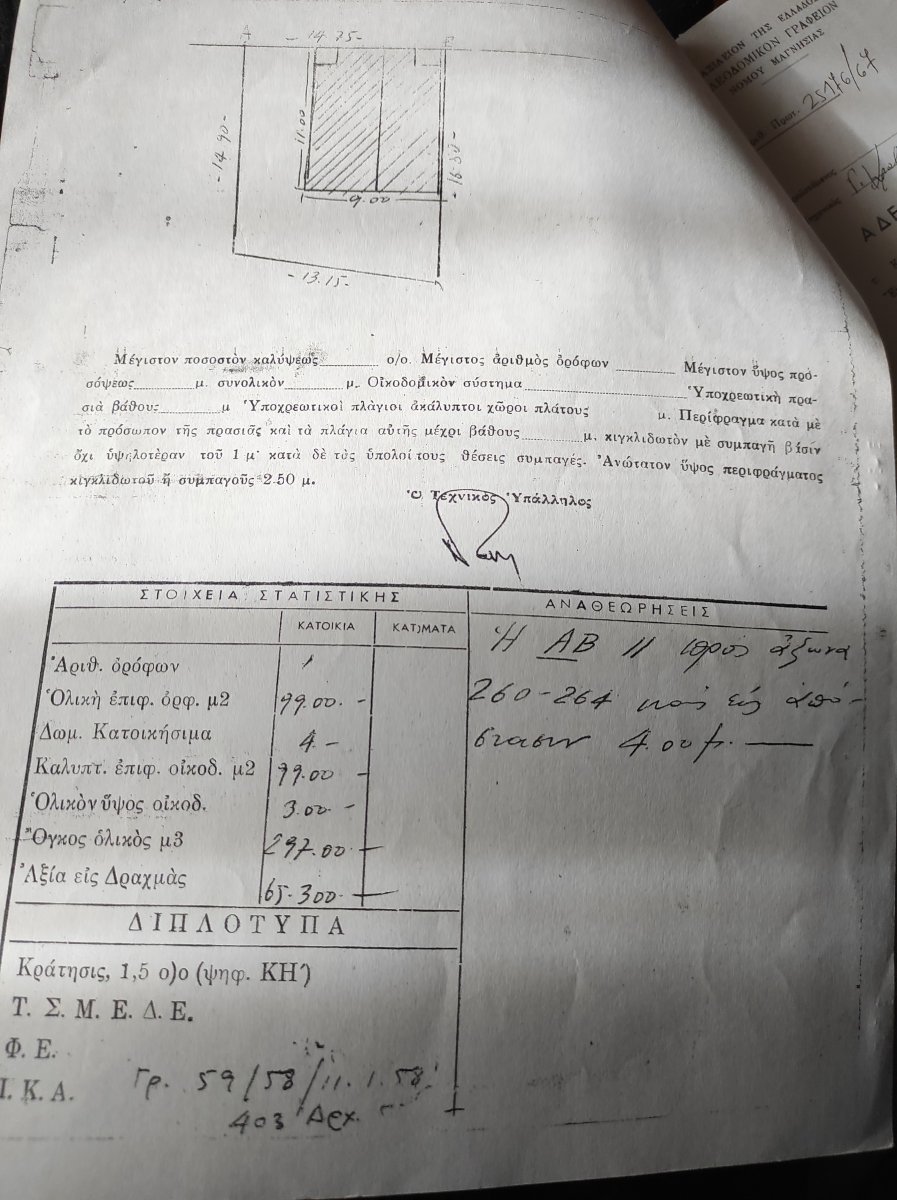 Α - 14.75 - Β
11.00
- 14.90 -
- 16.80 -
9.00
- 13.15 -
ΒΑΣΙΛΕΙΟΝ ΤΗΣ ΕΛΛΑΔΟΣ
ΠΟΛΕΟΔΟΜΙΚΟΝ ΓΡΑΦΕΙΟΝ
ΝΟΜΟΥ ΜΑΓΝΗΣΙΑΣ
Πρωτ. 25176/67
ΑΔΕ
Μέγιστον ποσοστὸν καλύψεως ο/ο. Μέγιστος ἀριθμὸς ὀρόφων Μέγιστον ὕψος προ-
σόψεως μ. συνολικὸν μ. Οἰκοδομικὸν σύστημα Ὑποχρεωτικὴ πρα-
σιὰ βάθους μ Ὑποχρεωτικοὶ πλάγιοι ἀκάλυπτοι χῶροι πλάτους μ. Περίφραγμα κατὰ μὲ
τὸ πρόσωπον τῆς πρασιᾶς καὶ τὰ πλάγια αὐτῆς μέχρι βάθους μ. κιγκλιδωτὸν μὲ συμπαγῆ βάσιν
ὄχι ὑψηλοτέραν τοῦ 1 μ· κατὰ δὲ τὰς ὑπολοίτους θέσεις συμπαγές. Ἀνώτατον ὕψος περιφράγματος
κιγκλιδωτοῦ ἢ συμπαγοῦς 2.50 μ.
Ὁ Τεχνικὸς Ὑπάλληλος
ΣΤΟΙΧΕΙΑ ΣΤΑΤΙΣΤΙΚΗΣ
ΑΝΑΘΕΩΡΗΣΕΙΣ
ΚΑΤΟΙΚΙΑ ΚΑΤ)ΜΑΤΑ
Ἡ ΑΒ // πρὸς ἄξωνα
260-264 καὶ εἰς ἀπό-
στασιν 4.00 μ.
Ἀριθ. ὀρόφων 1
Ὁλικὴ ἐπιφ. ὀρφ. μ2 99.00 -
Δωμ. Κατοικήσιμα 4 -
Καλυπτ. ἐπιφ. οἰκοδ. μ2 99.00 -
Ὁλικὸν ὕψος οἰκοδ. 3.00 -
Ὄγκος ὁλικὸς μ3 297.00 -
Ἀξία εἰς Δραχμὰς 65.300 -
ΔΙΠΛΟΤΥΠΑ
Κράτησις, 1,5 ο)ο (ψηφ. ΚΗ')
Τ. Σ. Μ. Ε. Δ. Ε.
Φ. Ε.
Ι. Κ. Α. Γρ. 59/58/11.1.58
403 Δρχ.